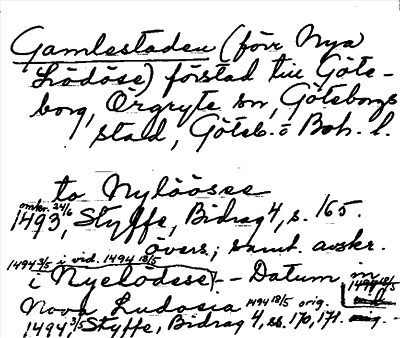 Gamlestaden (förr Nya
Lödöse) förstad till Göte-
borg, Örgryte sn, Göteborgs
stad, Göteb. o Boh. l.
to Nylöösse
omkr. 24/6
1493, Styffe, Bidrag 4, s. 165.
övers.; samt. avskr.
1494 3/5 i vid. 1494 18/5
i Nyelödese - - Datum in
1494 18/5
Nova Ludosia 1494 18/5 orig.
1494 3/5, Styffe, Bidrag 4, ss. 170, 171.